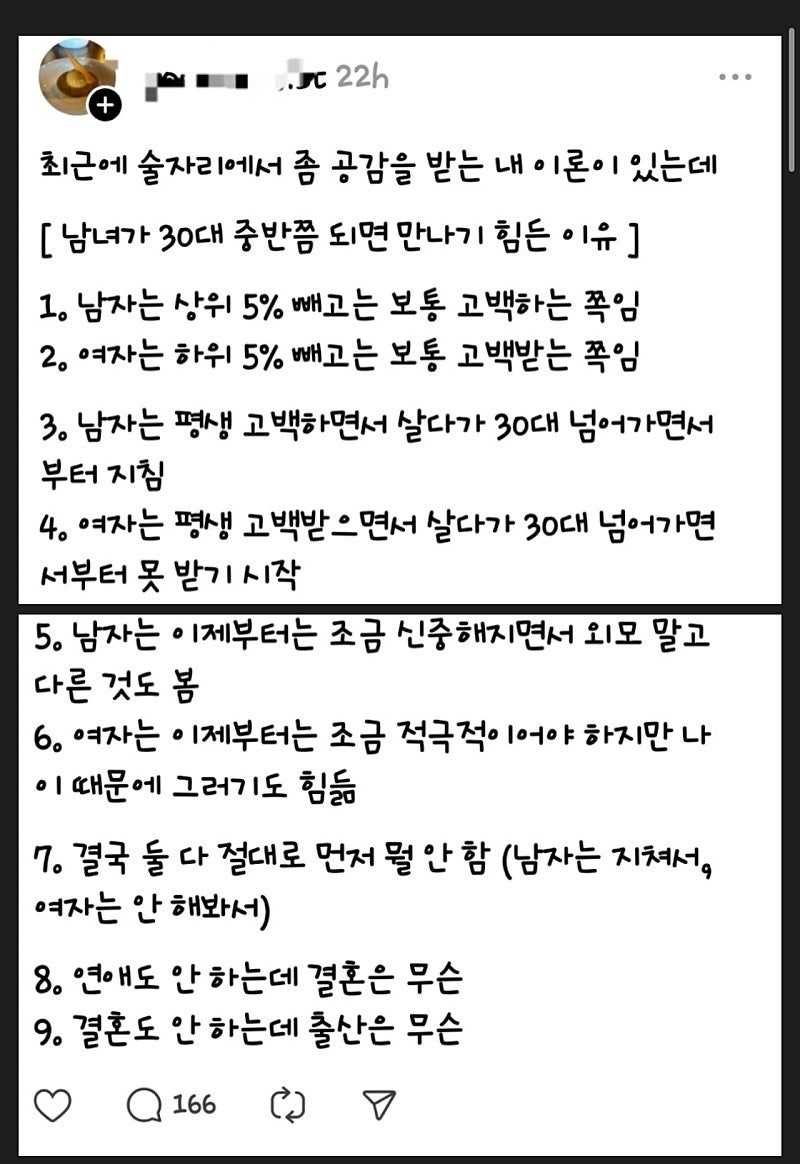 22h
최근에 술자리에서 좀 공감을 받는 내 이론이 있는데
[ 남녀가 30대 중반쯤 되면 만나기 힘든 이유 ]
1. 남자는 상위 5% 빼고는 보통 고백하는 쪽임
2. 여자는 하위 5% 빼고는 보통 고백받는 쪽임
3. 남자는 평생 고백하면서 살다가 30대 넘어가면서
부터 지침
4. 여자는 평생 고백받으면서 살다가 30대 넘어가면
서부터 못 받기 시작
5. 남자는 이제부터는 조금 신중해지면서 외모 말고
다른 것도 봄
6. 여자는 이제부터는 조금 적극적이어야 하지만 나
이 때문에 그러기도 힘듦
7. 결국 둘 다 절대로 먼저 뭘 안 함 (남자는 지쳐서,
여자는 안 해봐서)
8. 연애도 안 하는데 결혼은 무슨
9. 결혼도 안 하는데 출산은 무슨
166